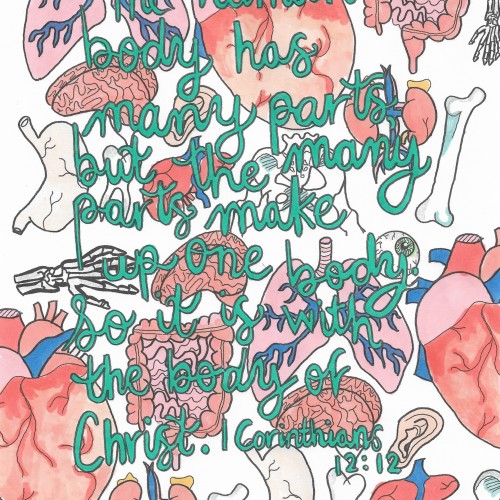 The human
body has
many parts
but the many
parts make
up one body.
So it is with
the body of
Christ. 1 Corinthians
12:12